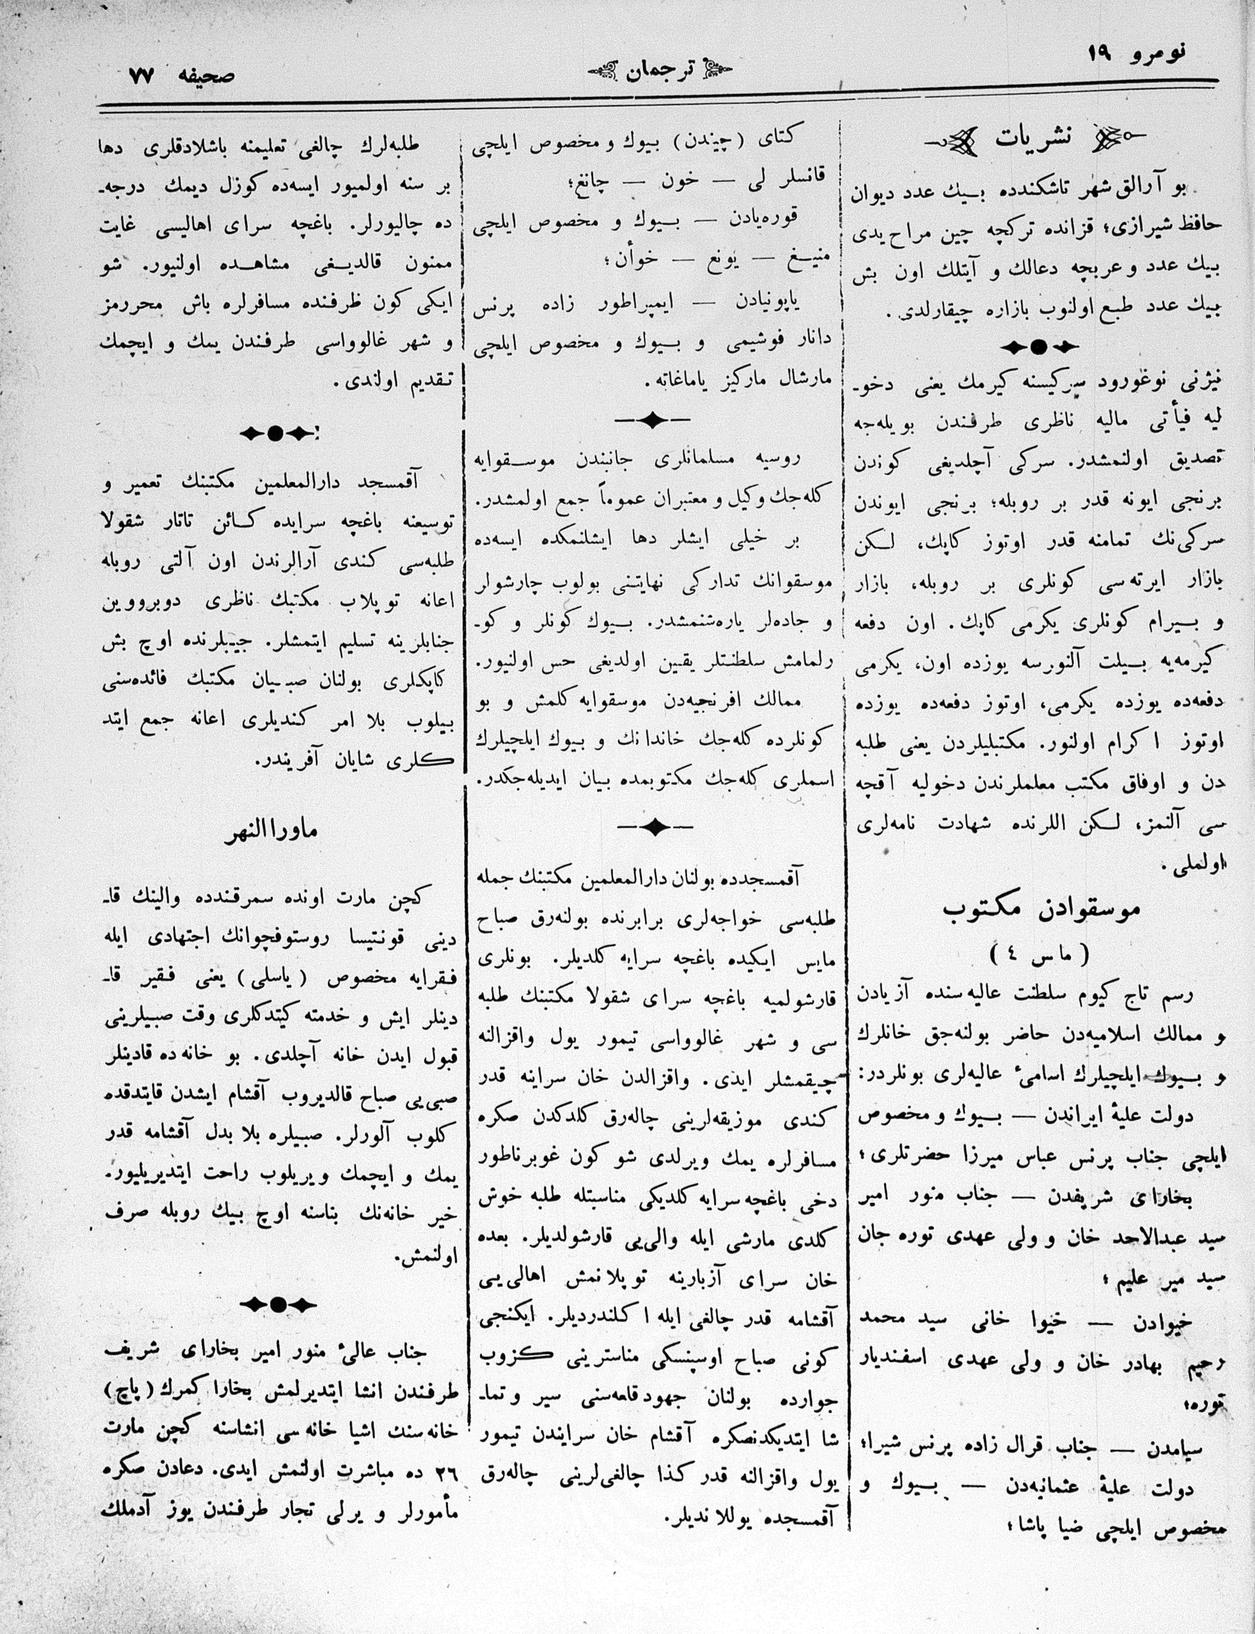 نومرو ١٩
ترجمان
صحيفه ٧٧
نشريات
بو آرالق شهر تاشكندده بيك عدد ديوان
حافظ شيرازى؛ قزانده تركچه چين مراح يدى
بيك عدد و عربچه دعالك و آيتلك اون بش
بيك عدد طبع اولنوب بازاره چيقارلدى.
نيژنى نوغورود سركيسنه كيرمك يعنى دخو-
ليه فيأتى ماليه ناظرى طرفندن بويله‌جه
تصديق اولنمشدر. سركى آچلديغى كوندن
برنجى ايونه قدر بر روبله؛ برنجى ايوندن
سركى‌نك تمامنه قدر اوتوز كاپك، لكن
بازار ايرته‌سى كونلرى بر روبله، بازار
و بيرام كونلرى يكرمى كاپك. اون دفعه
كيرمه‌يه بيلت آلنورسه يوزده اون، يكرمى
دفعه‌ده يوزده يكرمى، اوتوز دفعه‌ده يوزده
اوتوز اكرام اولنور. مكتبليلردن يعنى طلبه
دن و اوفاق مكتب معلملرندن دخوليه آقچه
سى آلنمز، لكن اللرنده شهادت نامه‌لرى
اولملى.
موسقوادن مكتوب
(ماس ٤)
رسم تاج كيوم سلطنت عاليه سنده آزيادن
و ممالك اسلاميه‌دن حاضر بولنه‌جق خانلرك
و بيوك ايلچيلرك اسامىٔ عاليه‌لرى بونلردر:
دولت عليهٔ ايراندن — بيوك و مخصوص
ايلچى جناب پرنس عباس ميرزا حضرتلرى؛
بخاراى شريفدن — جناب منور امير
سيد عبدالاحد خان و ولى عهدى توره جان
سيد مير عليم؛
خيوادن — خيوا خانى سيد محمد
رحيم بهادر خان و ولى عهدى اسفنديار
توره؛
سيامدن — جناب قرال زاده پرنس شيرا؛
دولت عليهٔ عثمانيه‌دن — بيوك و
مخصوص ايلچى ضيا پاشا؛
كتاى (چيندن) بيوك و مخصوص ايلچى
قانسلر لى — خون — چانغ؛
قوره‌يادن — بيوك و مخصوص ايلچى
منيغ — يونع — خوأن؛
ياپونيادن — ايمپراطور زاده پرنس
دانار فوشيمى و بيوك و مخصوص ايلچى
مارشال ماركيز ياماغاته.
روسيه مسلمانلرى جانبندن موسقوايه
كله‌جك وكيل و معتبران عموماً جمع اولمشدر.
بر خيلى ايشلر دها ايشلنمكده ايسه‌ده
موسقوانك تداركى نهايتنى بولوب چارشولر
و جاده‌لر ياره‌شنمشدر. بيوك كونلر و كو-
رلمامش سلطنتلر يقين اولديغى حس اولنيور.
ممالك افرنجيه‌دن موسقوايه كلمش و بو
كونلرده كله‌جك خاندانك و بيوك ايلچيلرك
اسملرى كله‌جك مكتوبمده بيان ايديله‌جكدر.
آقمسجدده بولنان دارالمعلمين مكتبنك جمله
طلبه‌سى خواجه‌لرى برابرنده بولنه‌رق صباح
مايس ايكيده باغچه سرايه كلديلر. بونلرى
قارشولميه باغچه سراى شقولا مكتبنك طلبه
سى و شهر غالوواسى تيمور يول واقزالنه
چيقمشلر ايدى. واقزالدن خان سراينه قدر
كندى موزيقه‌لرينى چاله‌رق كلدكدن صكره
مسافرلره يمك ويرلدى شو كون غوبرناطور
دخى باغچه سرايه كلديكى مناسبتله طلبه خوش
كلدى مارشى ايله والى‌يى قارشولديلر. بعده
خان سراى آزبارينه توپلانمش اهالى‌يى
آقشامه قدر چالغى ايله اكلندرديلر. ايكنجى
كونى صباح اوسپنسكى مناسترينى كزوب
جوارده بولنان جهود قلعه‌سنى سير و تما-
شا ايتديكدنصكره آقشام خان سرايندن تيمور
يول واقزالنه قدر كذا چالغى‌لرينى چاله‌رق
آقمسجده يوللانديلر.
طلبه‌لرك چالغى تعليمنه باشلادقلرى دها
بر سنه اولميور ايسه‌ده كوزل ديمك درجه-
ده چاليورلر. باغچه سراى اهاليسى غايت
ممنون قالديغى مشاهده اولنيور. شو
ايكى كون ظرفنده مسافرلره باش محررمز
و شهر غالوواسى طرفندن يمك و ايچمك
تقديم اولندى.
آقمسجد دارالمعلمين مكتبنك تعمير و
توسيعنه باغچه سرايده كائن تاتار شقولا
طلبه‌سى كندى آرالرندن اون آلتى روبله
اعانه توپلاب مكتبك ناظرى دوبرووين
جنابلرينه تسليم ايتمشلر. جيبلرنده اوچ بش
كاپكلرى بولنان صبيان مكتبك فائده‌سنى
بيلوب بلا امر كنديلرى اعانه جمع ايتد
كلرى شايان آفريندر.
ماورا النهر
كچن مارت اونده سمرقندده والينك قا-
دينى قونتيسا روستوفچوانك اجتهادى ايله
فقرايه مخصوص (ياسلى) يعنى فقير قا-
دينلر ايش و خدمته كيتدكلرى وقت صبيلرينى
قبول ايدن خانه آچلدى. بو خانه‌ده قادينلر
صبى‌يى صباح قالديروب آقشام ايشدن قايتدقده
كلوب آلورلر. صبيلره بلا بدل آقشامه قدر
يمك و ايچمك ويريلوب راحت ايتديريليور.
خير خانه‌نك بناسنه اوچ بيك روبله صرف
اولنمش.
جناب عالىٔ منور امير بخاراى شريف
طرفندن انشا ايتديرلمش بخارا كمرك (پاج)
خانه سنك اشيا خانه سى انشاسنه كچن مارت
٢٦ ده مباشرت اولنمش ايدى. دعادن صكره
مأمورلر و يرلى تجار طرفندن يوز آدملك